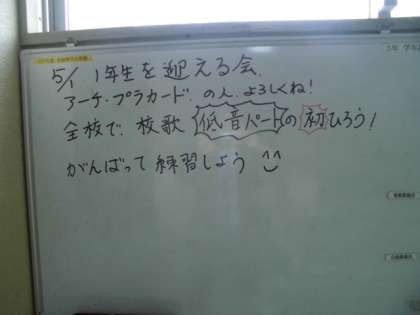 5/1 1年生を迎える会.
アーチ.プラカード.の人.よろしくね!
全校で.校歌 低音パートの初ひろう!
がんばって練習しよう ^^